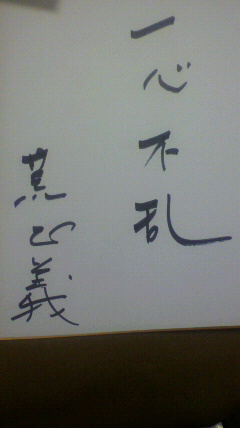 一心不乱
黄正義